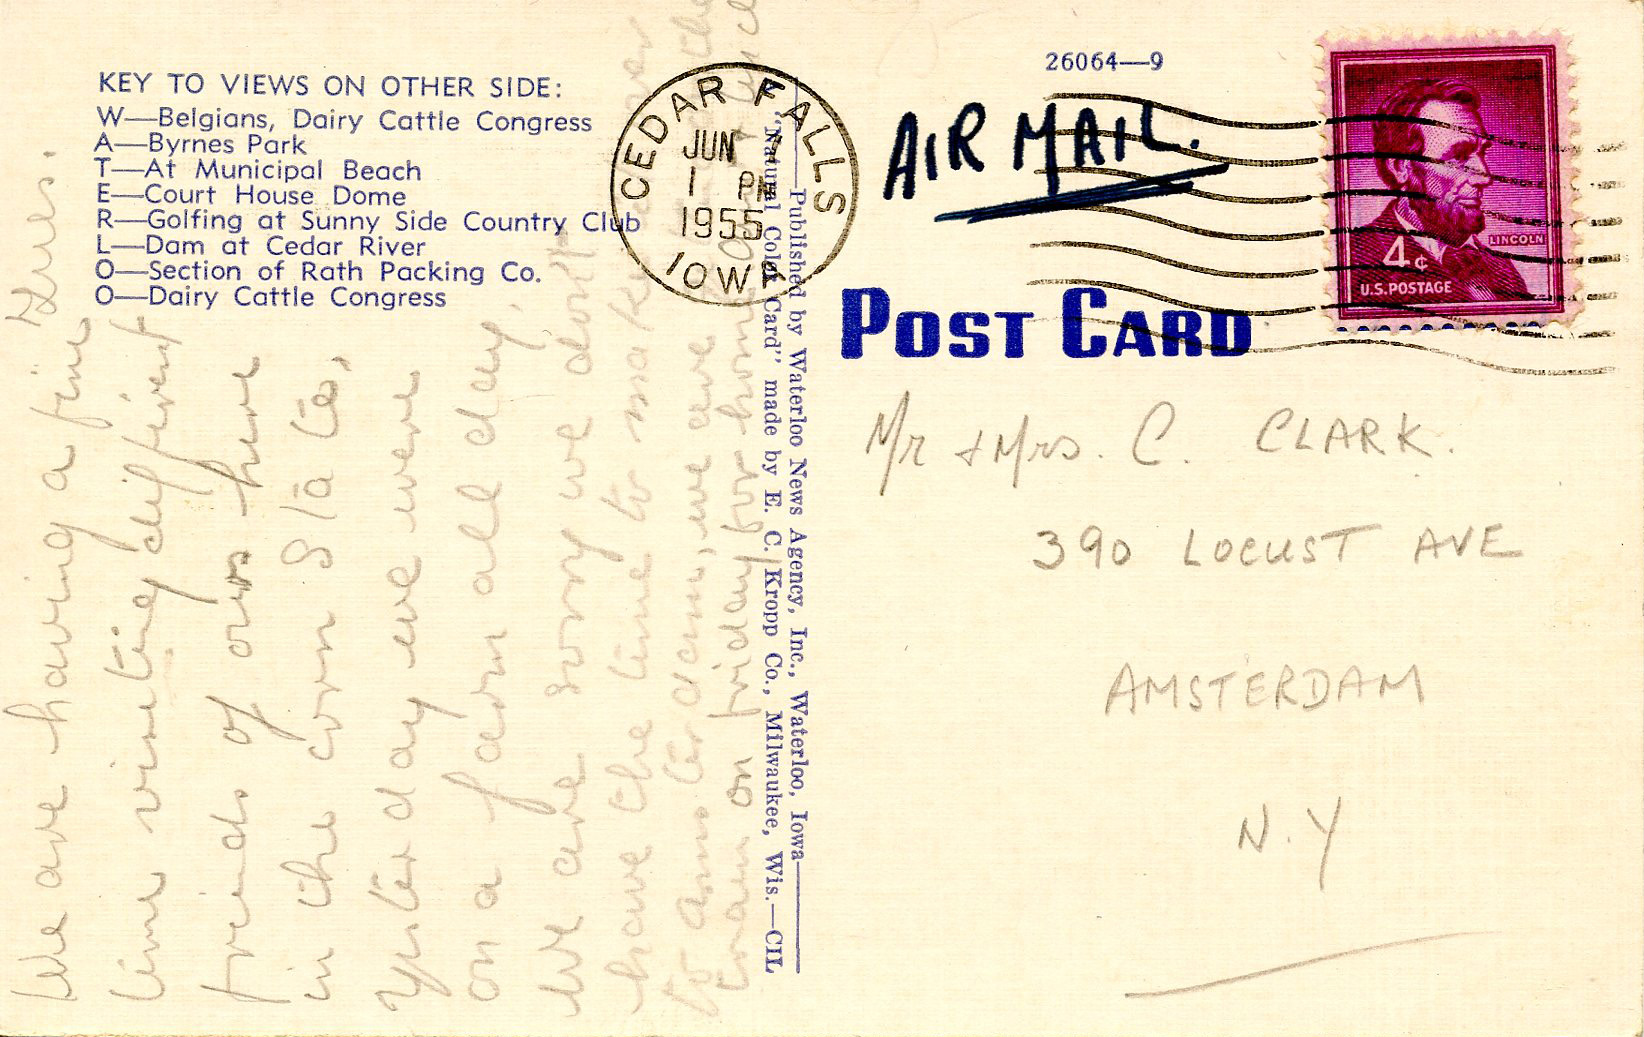 KEY TO VIEWS ON OTHER SIDE:
W—Belgians, Dairy Cattle Congress
A—Byrnes Park
T—At Municipal Beach
E—Court House Dome
R—Golfing at Sunny Side Country Club
L—Dam at Cedar River
O—Section of Rath Packing Co.
O—Dairy Cattle Congress
CEDAR FALLS
JUN
1 PM
1955
IOWA
26064—9
AIR MAIL.
LINCOLN
4¢
U.S. POSTAGE
POST CARD
Mr + Mrs. C. CLARK.
390 LOCUST AVE
AMSTERDAM
N.Y
—Published by Waterloo News Agency, Inc., Waterloo, Iowa—
"Natural Color Card" made by E. C. Kropp Co., Milwaukee, Wis.—CIL
We are having a fine
time visiting different
friends of ours here
in the corn State,
yesterday we were
on a farn all day.
We are sorry we dont
have the time to make
to amsterdam, we are
on friday for home